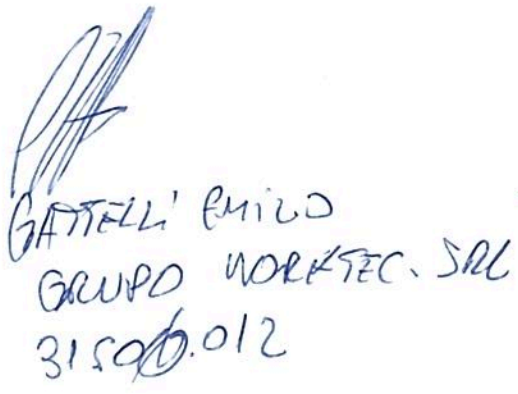 GATTELLI EMILIO
GRUPO WORKTEC. SRL
31500.012